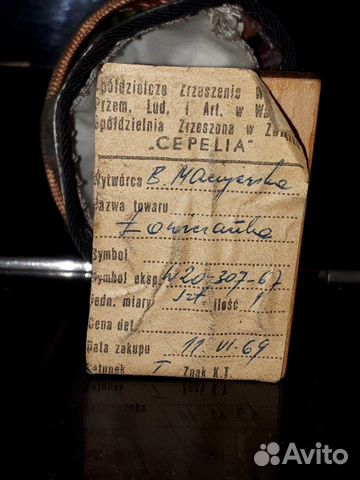 półdzielcze Zrzeszenie W
Przem. Lud. i Art. w Wa
Spółdzielnia Zrzeszona w Zw
„CEPELIA"
Wytwórca B. Macyerska
azwa towaru
Łowiczanka
Symbol
Symbol eksp. W20-307-67
Jedn. miary szt ilość 1
Cena det.
Data zakupu 11 VI 69
Gatunek I Znak K.T.
Avito